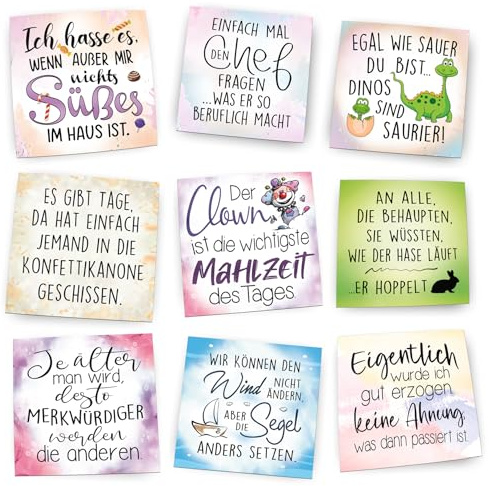 Ich hasse es,
WENN AUßER MIR
nichts
Süßes
IM HAUS IST.
EINFACH MAL
DEN Chef
FRAGEN
...WAS ER SO
BERUFLICH MACHT
EGAL WIE SAUER
DU BIST...
DINOS
SIND
SAURIER!
ES GIBT TAGE,
DA HAT EINFACH
JEMAND IN DIE
KONFETTIKANONE
GESCHISSEN.
Der
Clown
ist die wichtigste
MAHLZEIT
des Tages.
AN ALLE,
DIE BEHAUPTEN,
SIE WÜSSTEN,
WIE DER HASE LÄUFT
...ER HOPPELT
Je älter
man wird,
desto
MERKWÜRDIGER
werden
die anderen.
WIR KÖNNEN DEN
Wind NICHT
ÄNDERN,
ABER
DIE Segel
ANDERS SETZEN.
Eigentlich
wurde ich
gut erzogen,
keine Ahnung,
was dann passiert ist.